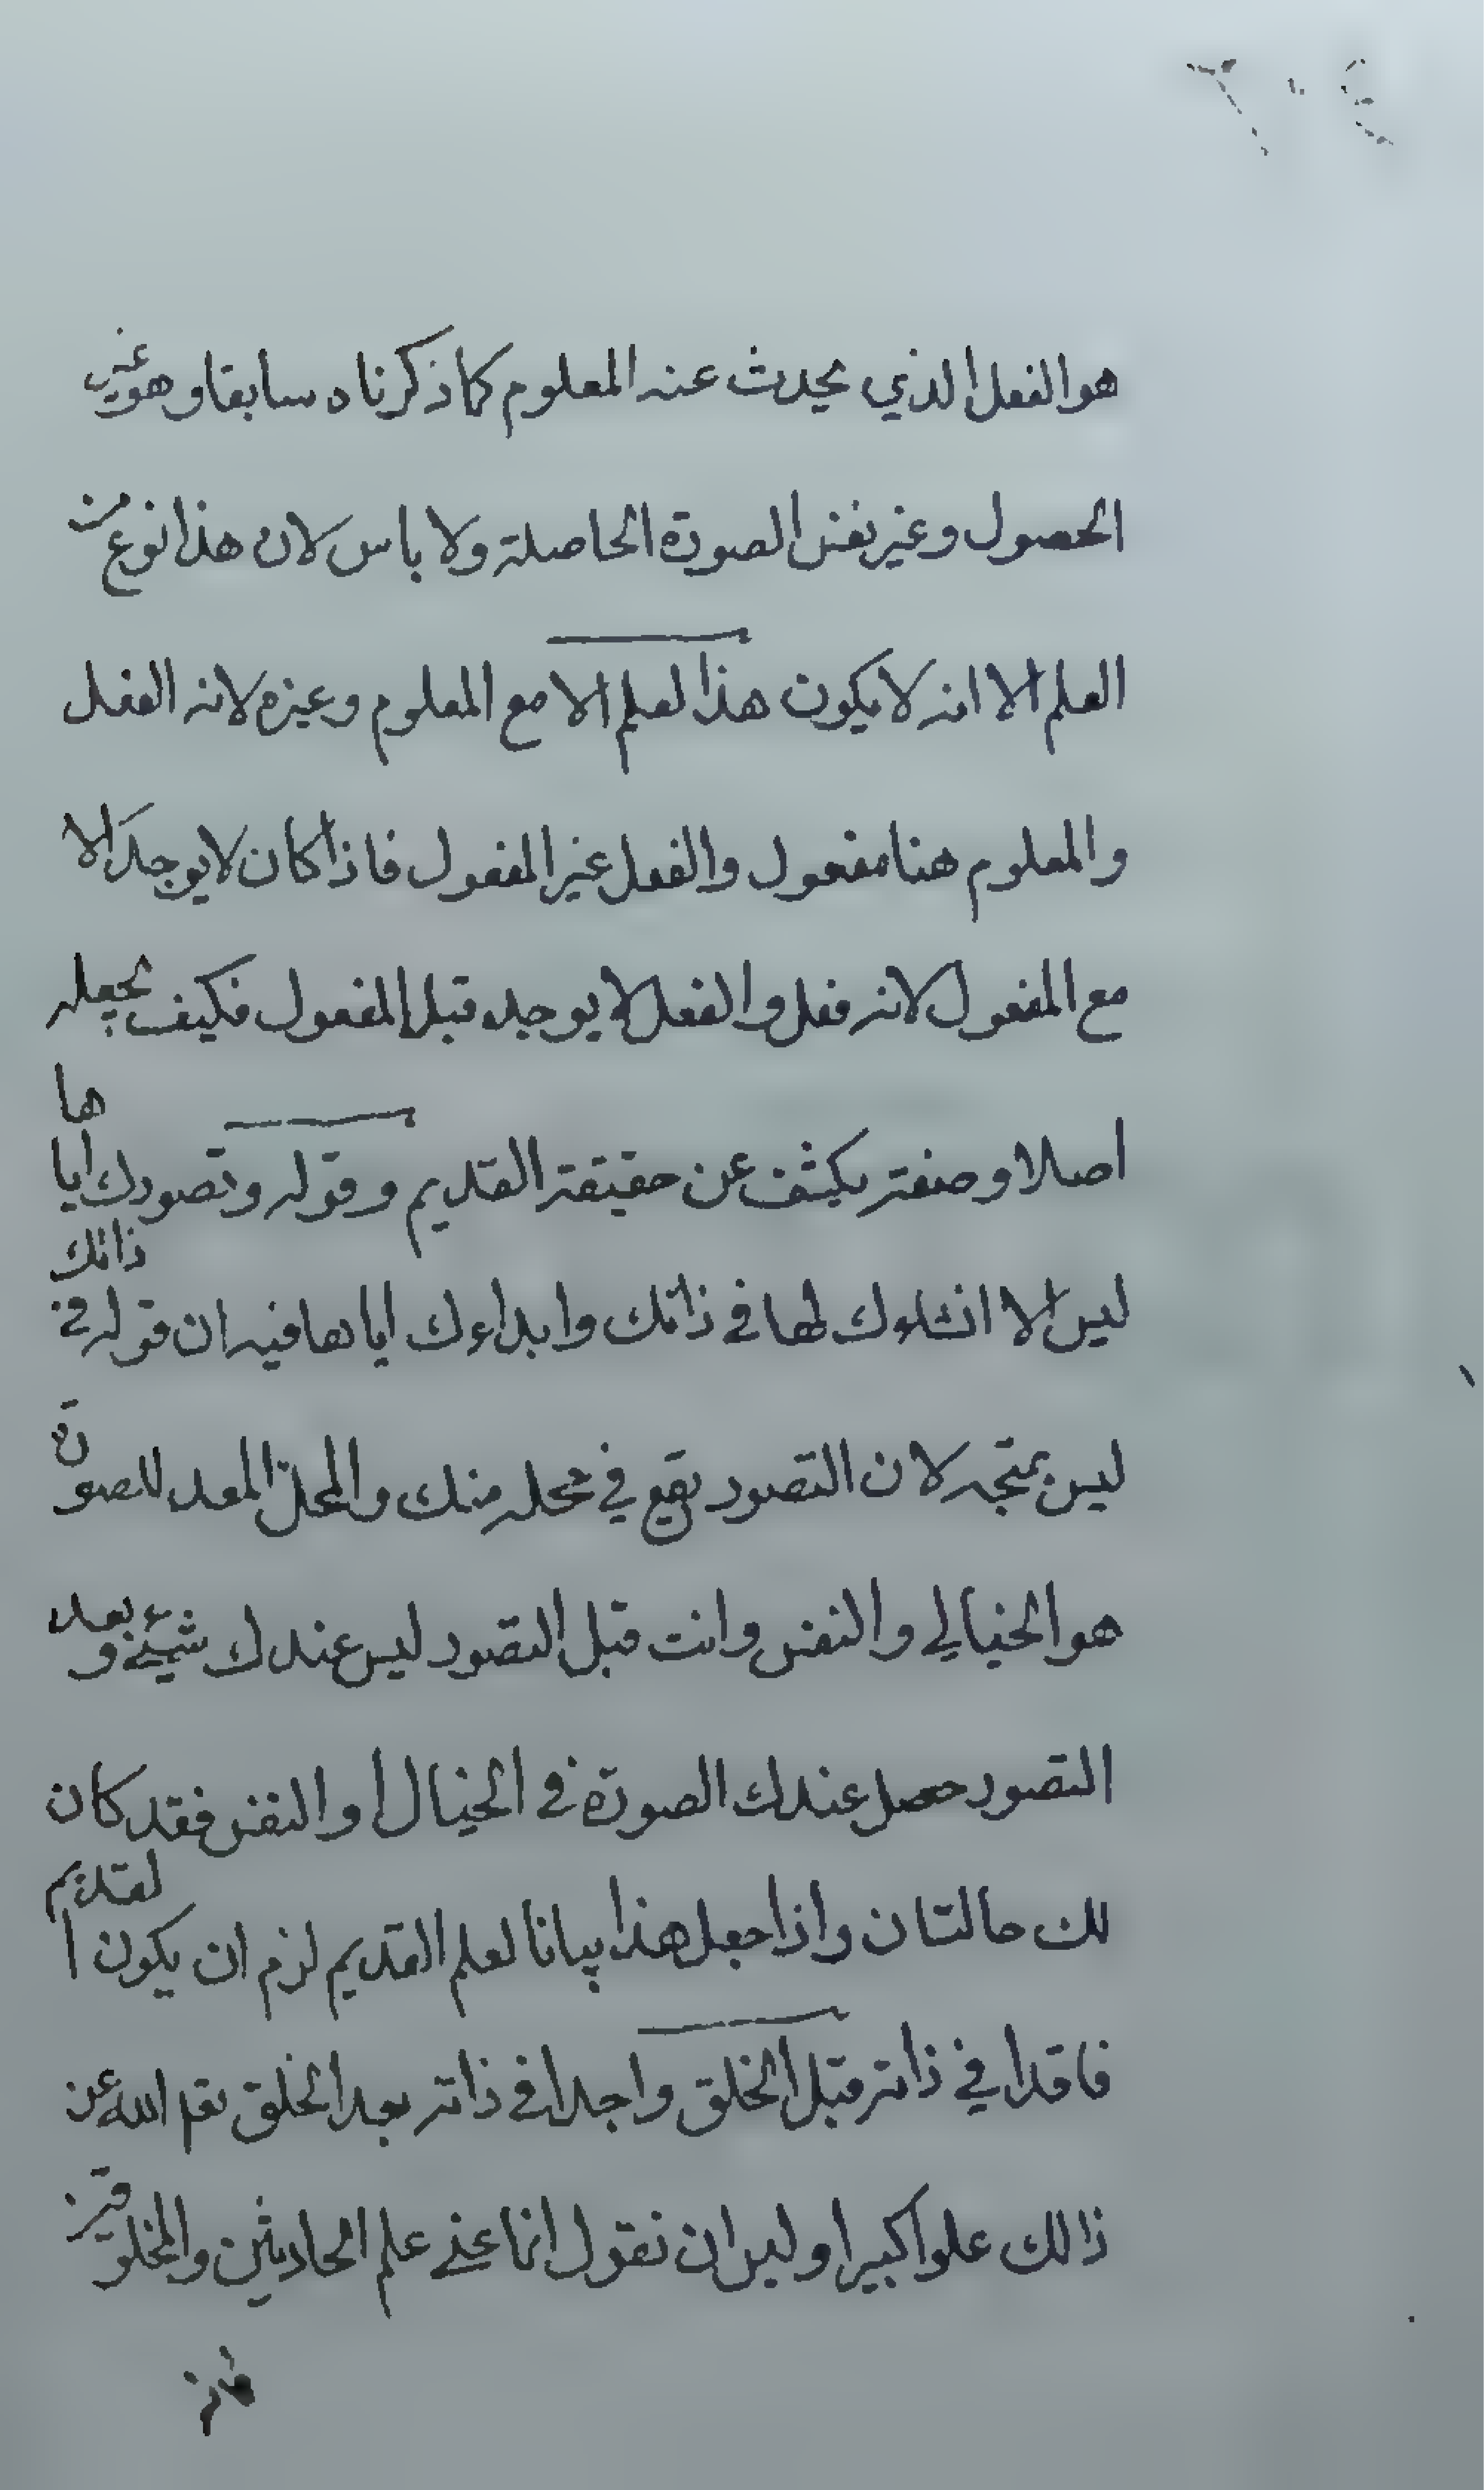 هو الفعل الذي يحدث عنه المعلوم كما ذكرناه سابقا وهو غير
الحصول وغير نفس الصورة الحاصلة ولا باس لان هذا نوع من
العلم الا انه لا يكون هذا لعلم الا مع المعلوم وغيره لانه الفعل
والمعلوم هنا مفعول والفعل غير المفعول فاذا كان لا يوجد الا
مع المفعول لانه فعل والفعل لا يوجد قبل المفعول فكيف يجعله
اصلا وصفته يكشف عن حقيقة القديم وقوله وتصورك اياها
ليس الا انشاءوك لها في ذاتك وابداءوك اياها فيه ان قوله في ذاتك
ليس بمتجه لان التصور يقع في محله منك والمحل المعد للصورة
هو الخيالي والنفس وانت قبل التصور ليس عندك شيئ وبعد
التصور حصل عندك الصورة في الخيال او النفس فقد كان
لك حالتان واذا جعل هذا بيانا لعلم القديم لزم ان يكون القديم
فاقدا في ذاته قبل الخلق واجدا في ذاته بعد الخلق تعالى الله عن
ذالك علوا كبيرا وليس ان نقول انما عني علم الحادثين والمخلوقين